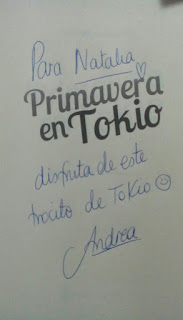 Para Natalia
Primavera
en Tokio
disfruta de este
trocito de Tokio ☺
Andrea